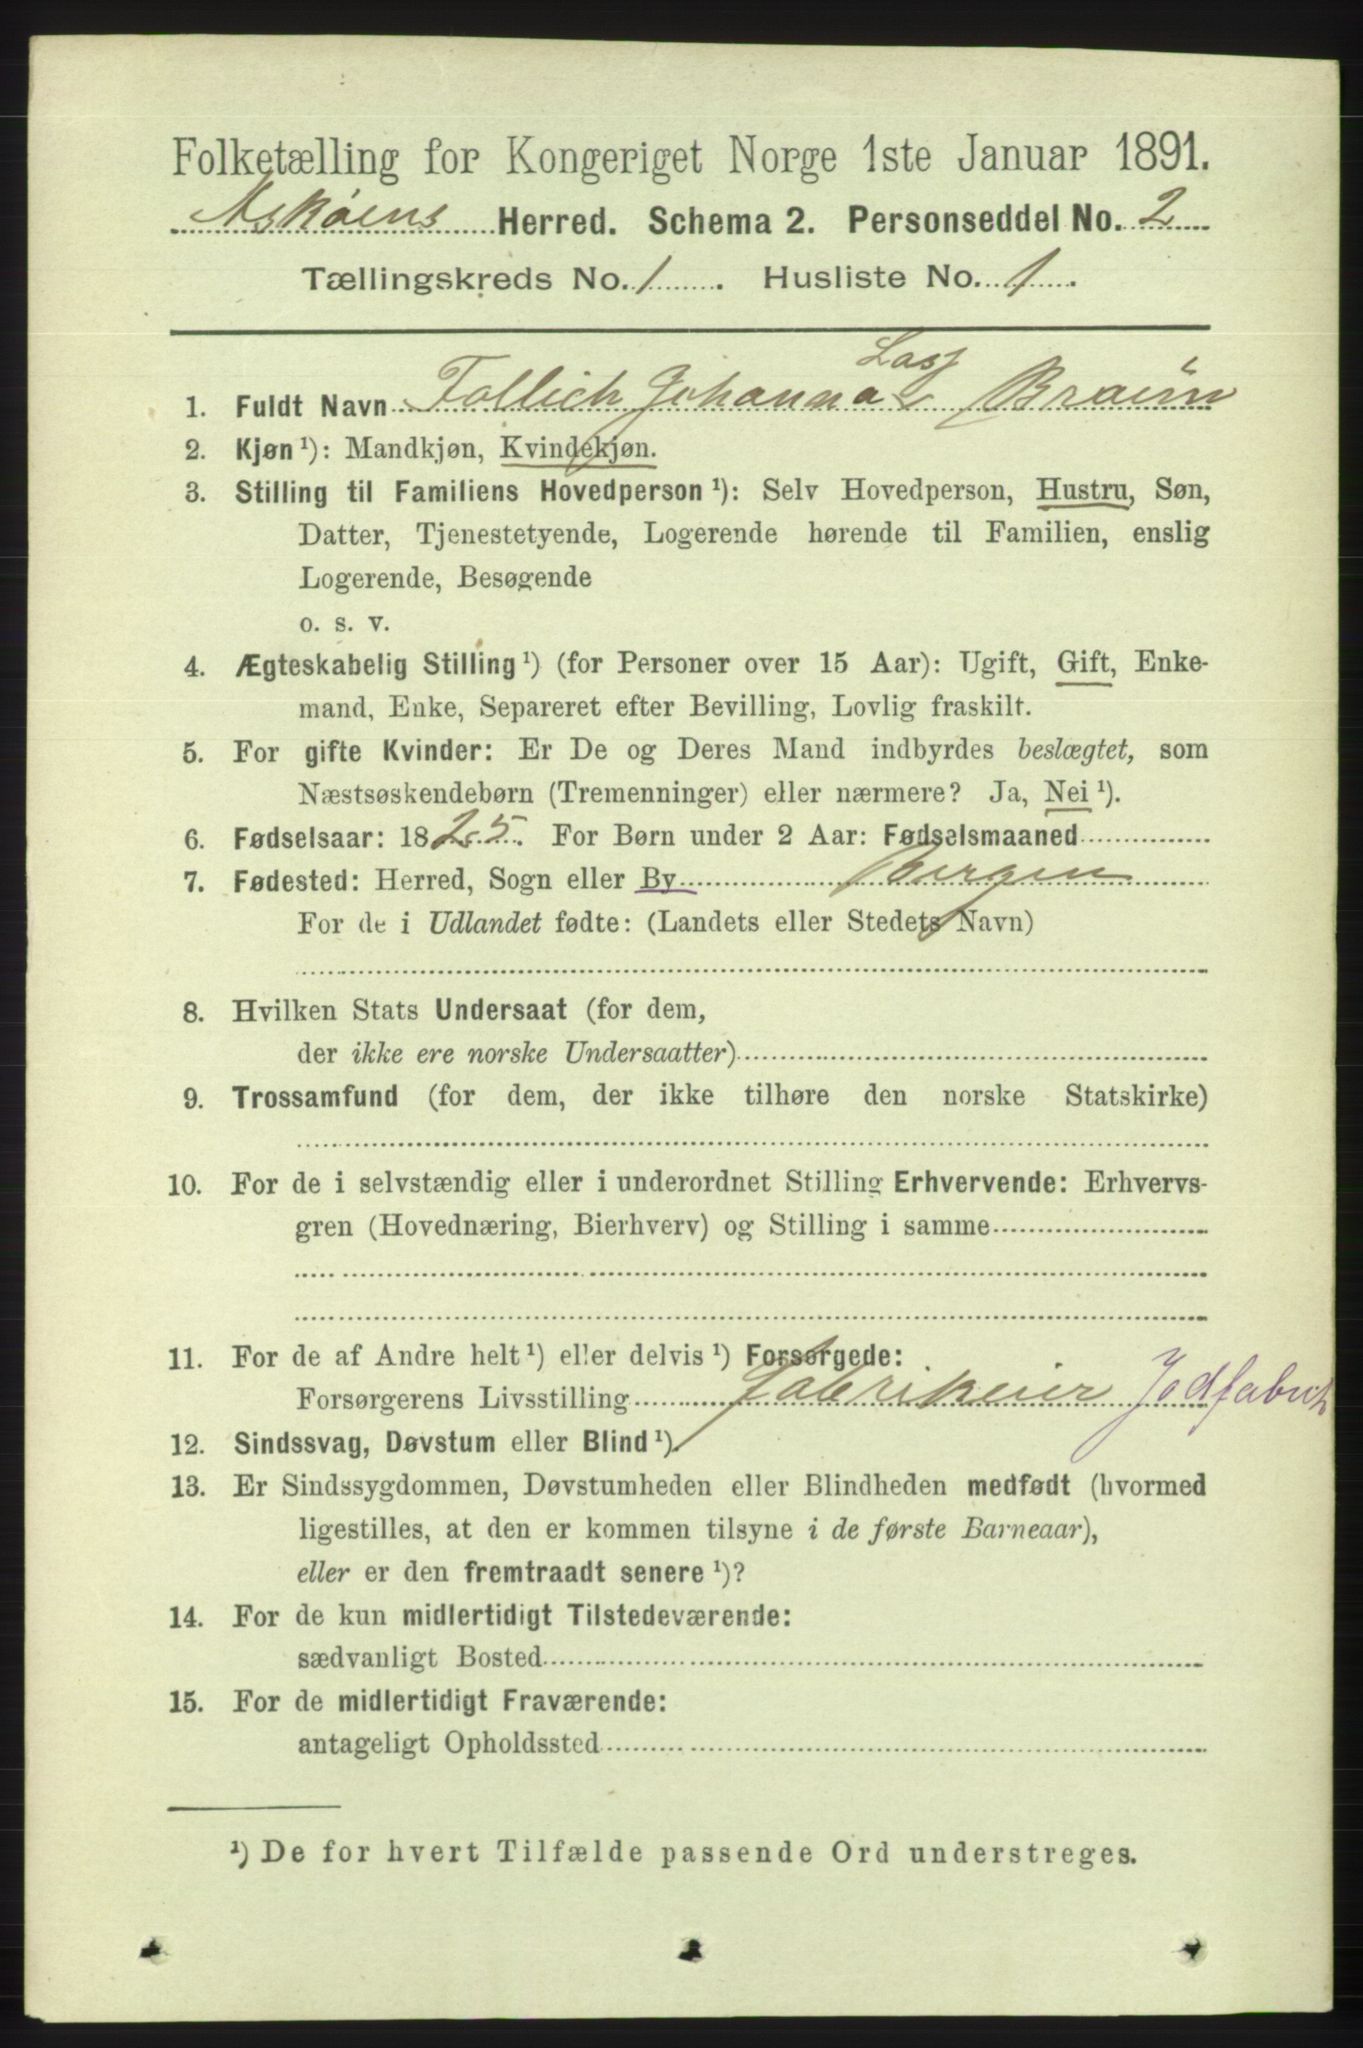 Folketælling for Kongeriget Norge 1ste Januar 1891.
Askøens Herred. Schema 2. Personseddel No. 2
Tællingskreds No. 1. Husliste No. 1.
1. Fuldt Navn Johanna
2. Kjøn ¹): Mandkjøn, Kvindekjøn.
3. Stilling til Familiens Hovedperson ¹): Selv Hovedperson, Hustru, Søn,
Datter, Tjenestetyende, Logerende hørende til Familien, enslig
Logerende, Besøgende
o. s. v.
4. Ægteskabelig Stilling ¹) (for Personer over 15 Aar): Ugift, Gift, Enke-
mand, Enke, Separeret efter Bevilling, Lovlig fraskilt.
5. For gifte Kvinder: Er De og Deres Mand indbyrdes beslægtet, som
Næstsøskendebørn (Tremenninger) eller nærmere? Ja, Nei ¹).
6. Fødselsaar: 1825. For Børn under 2 Aar: Fødselsmaaned
7. Fødested: Herred, Sogn eller By Bergen
For de i Udlandet fødte: (Landets eller Stedets Navn)
8. Hvilken Stats Undersaat (for dem,
der ikke ere norske Undersaatter)
9. Trossamfund (for dem, der ikke tilhøre den norske Statskirke)
10. For de i selvstændig eller i underordnet Stilling Erhvervende: Erhvervs-
gren (Hovednæring, Bierhverv) og Stilling i samme
11. For de af Andre helt ¹) eller delvis ¹) Forsørgede:
Forsørgerens Livsstilling Fabrikeier Jodfabrik
12. Sindssvag, Døvstum eller Blind ¹).
13. Er Sindssygdommen, Døvstumheden eller Blindheden medfødt (hvormed
ligestilles, at den er kommen tilsyne i de første Barneaar),
eller er den fremtraadt senere ¹)?
14. For de kun midlertidigt Tilstedeværende:
sædvanligt Bosted
15. For de midlertidigt Fraværende:
antageligt Opholdssted
¹) De for hvert Tilfælde passende Ord understreges.